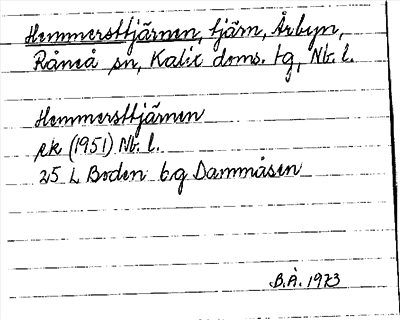 Hemmersttjärnen, tjärn, Årbyn,
Råneå sn, Kalix doms. tg, Nb. l.
Hemmersttjärnen
ek (1951) Nb. l.
25 L Boden 6g Dammåsen
B.Å. 1973